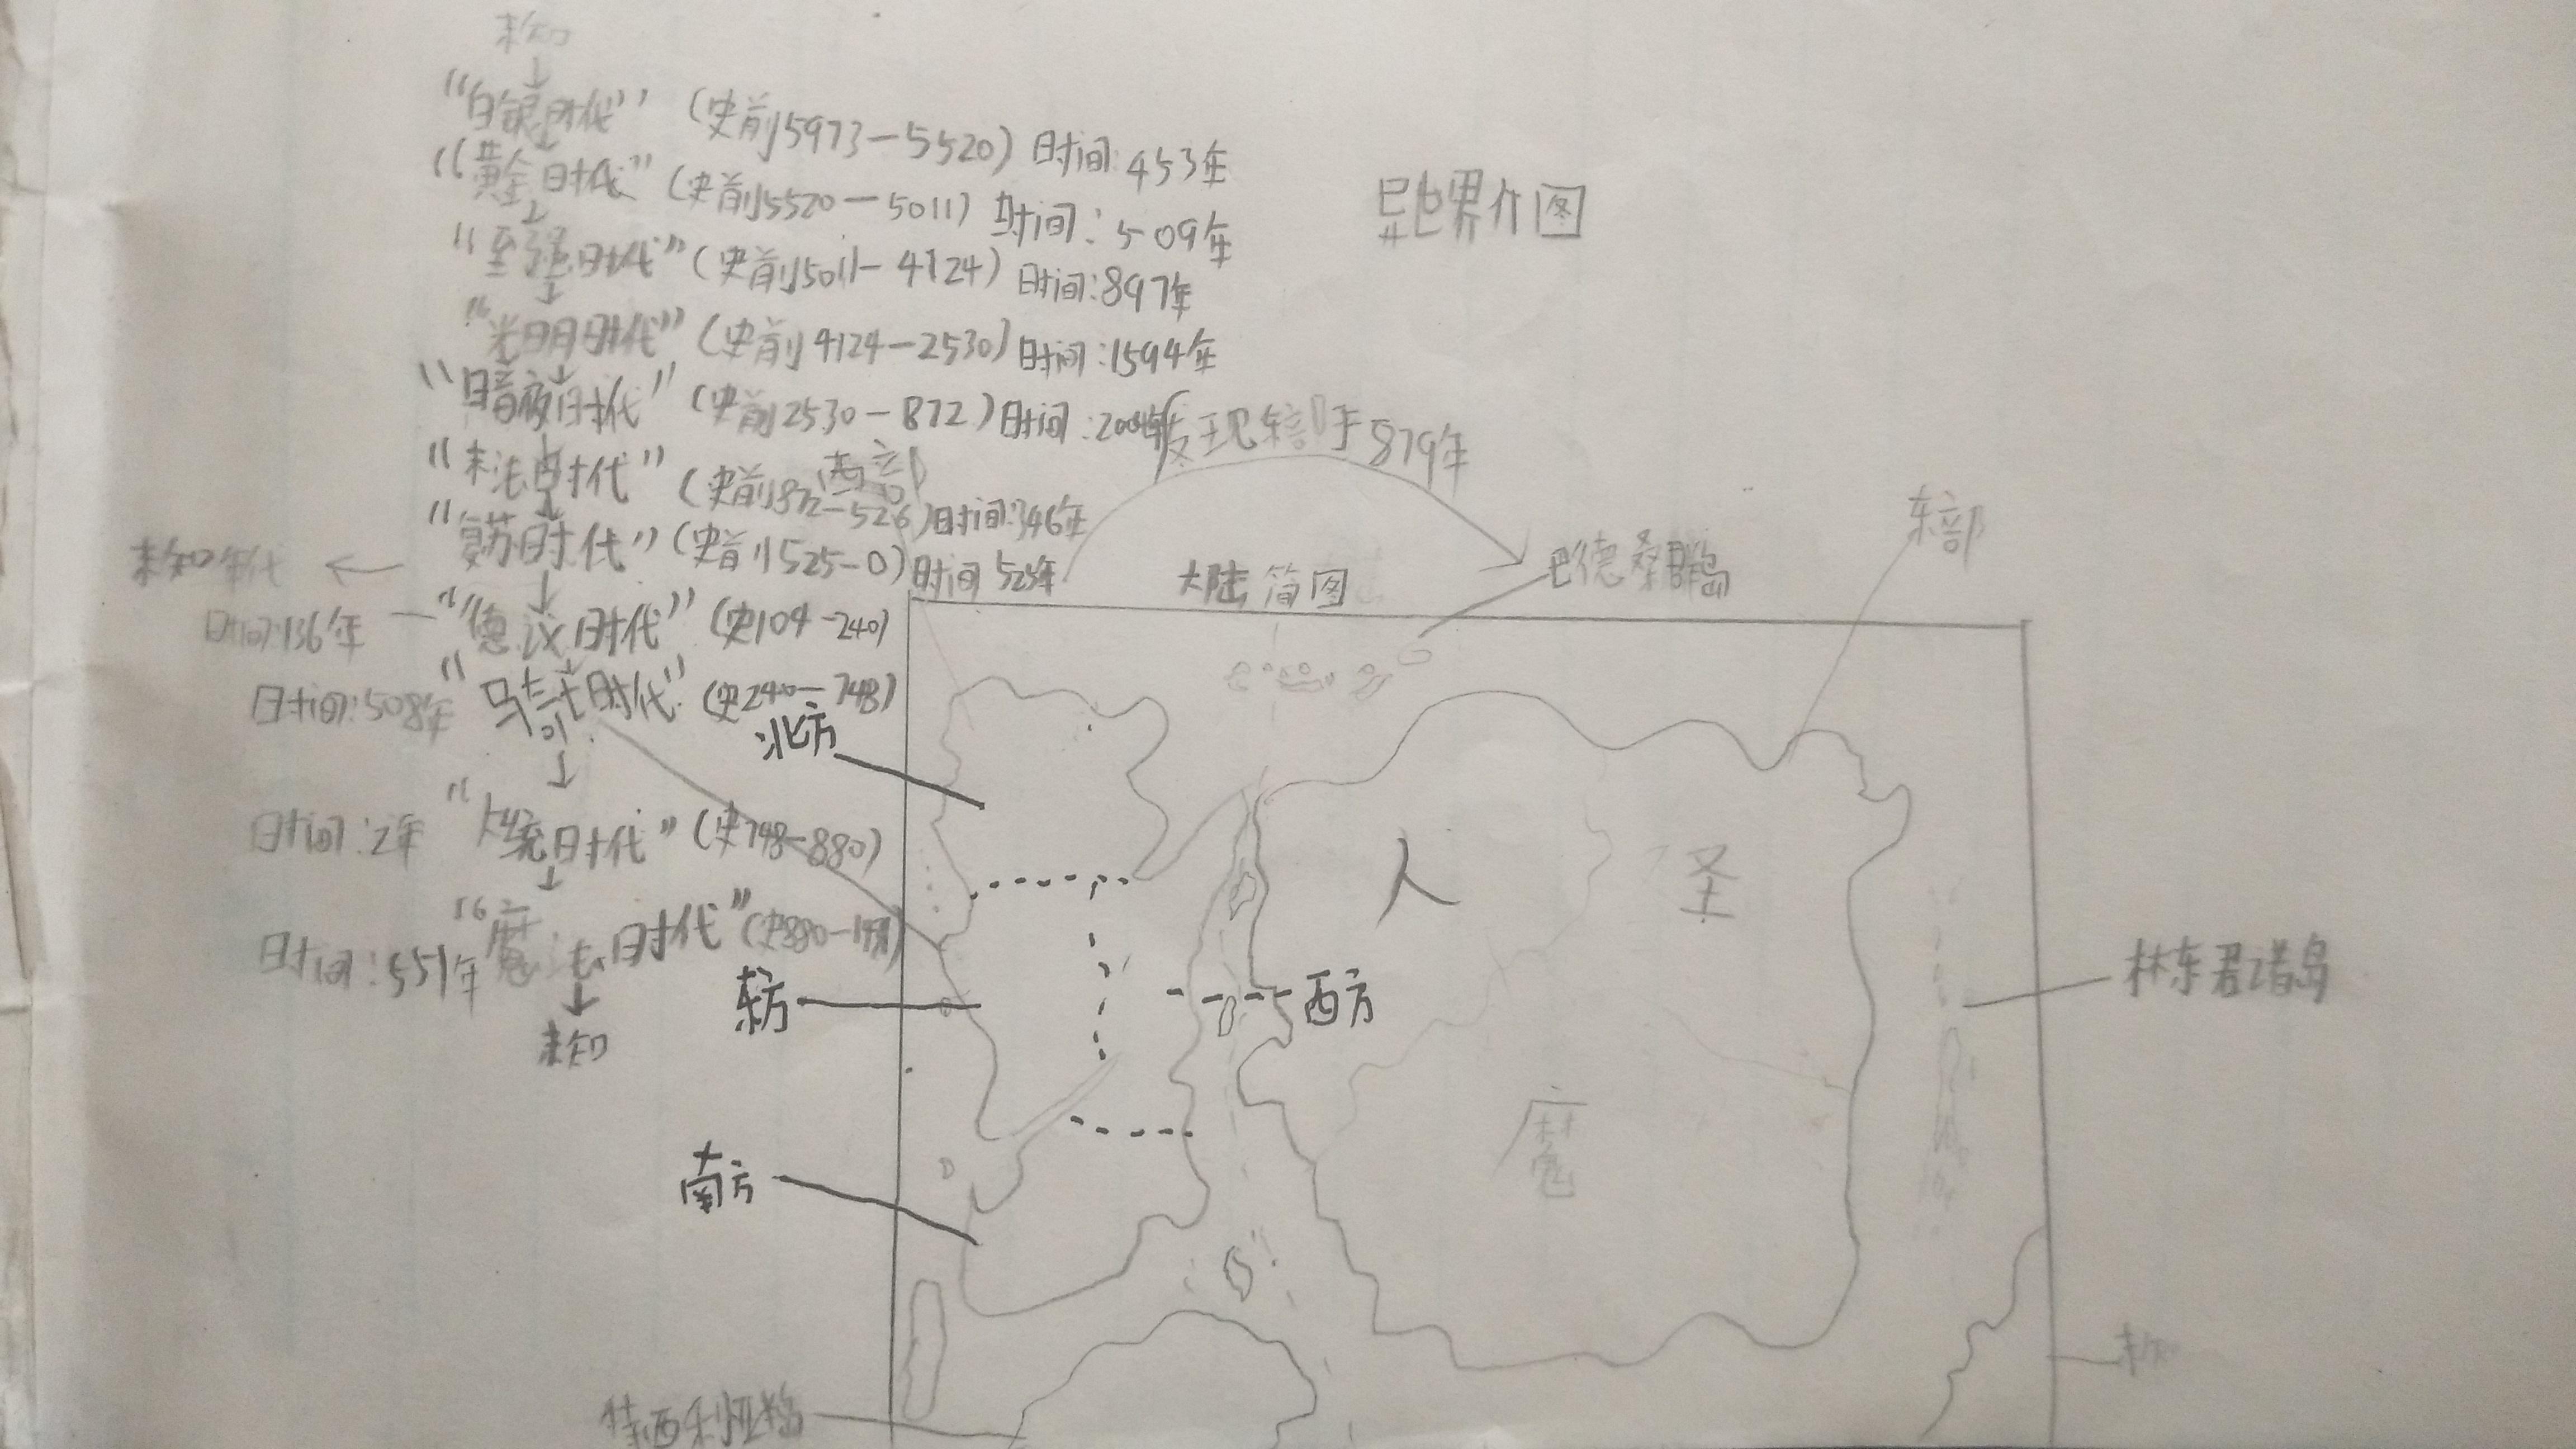 未知
“白银时代”(史前5973-5520)时间:453年
“黄金时代”(史前5520-5011)时间:509年
“至强时代”(史前5011-4124)时间:897年
“光明时代”(史前4124-2530)时间:1594年
“暗夜时代”(史前2530-872)时间:
发现东部于879年
“末法时代”(史前872-526)时间:346年
西部
“复苏时代”(史前525-0)时间525年
未知年代
“德议时代”(史104-240)
时间:136年
时代”(史240-748)
时间:508年
统时代”(史748-880)
时间:2年
“魔法时代”(史880-
时间:551年
未知
异世界作图
大陆简图
巴德桑群岛
东部
北方
人
圣
东方
西方
林东君诸岛
魔
南方
特西利亚岛
未知